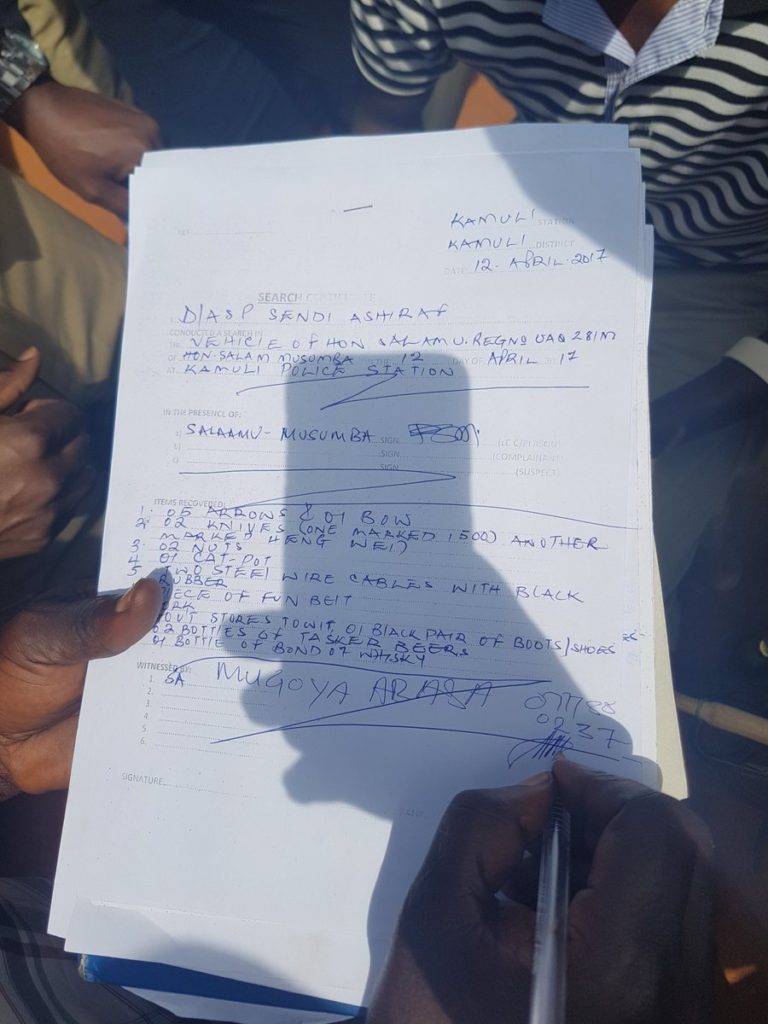 KAMULI STATION
KAMULI DISTRICT
DATE 12. APRIL. 2017
SEARCH CERTIFICATE
D/ASP SENDI ASHIRAF
CONDUCTED A SEARCH IN
THE VEHICLE OF HON SALAMU. REG NO UAQ 281M
OF HON. SALAM MUSUMBA THE 12 DAY OF APRIL 17
AT KAMULI POLICE STATION
IN THE PRESENCE OF:
a) SALAAMU - MUSUMBA SIGN (LC C/PERSON)
b) SIGN (COMPLAINANT)
c) SIGN (SUSPECT)
ITEMS RECOVERED:
1. 05 ARROWS & 01 BOW
2. 02 KNIVES (ONE MARKED 1500) ANOTHER
MARKED HENG WEI)
3. 02 NUTS
4 01 CAT-POT
5 TWO STEEL WIRE CABLES WITH BLACK
RUBBER
PIECE OF FUN BELT
OUT STORES TOWIT 01 BLACK PAIR OF BOOTS/SHOES
02 BOTTLES OF TASKER BEERS
01 BOTTLE OF BOND 07 WHISKY
WITNESSED BY:
1. SA MUGOYA ARAJA
2.
3.
4.
5.
6.
0237
SIGNATURE